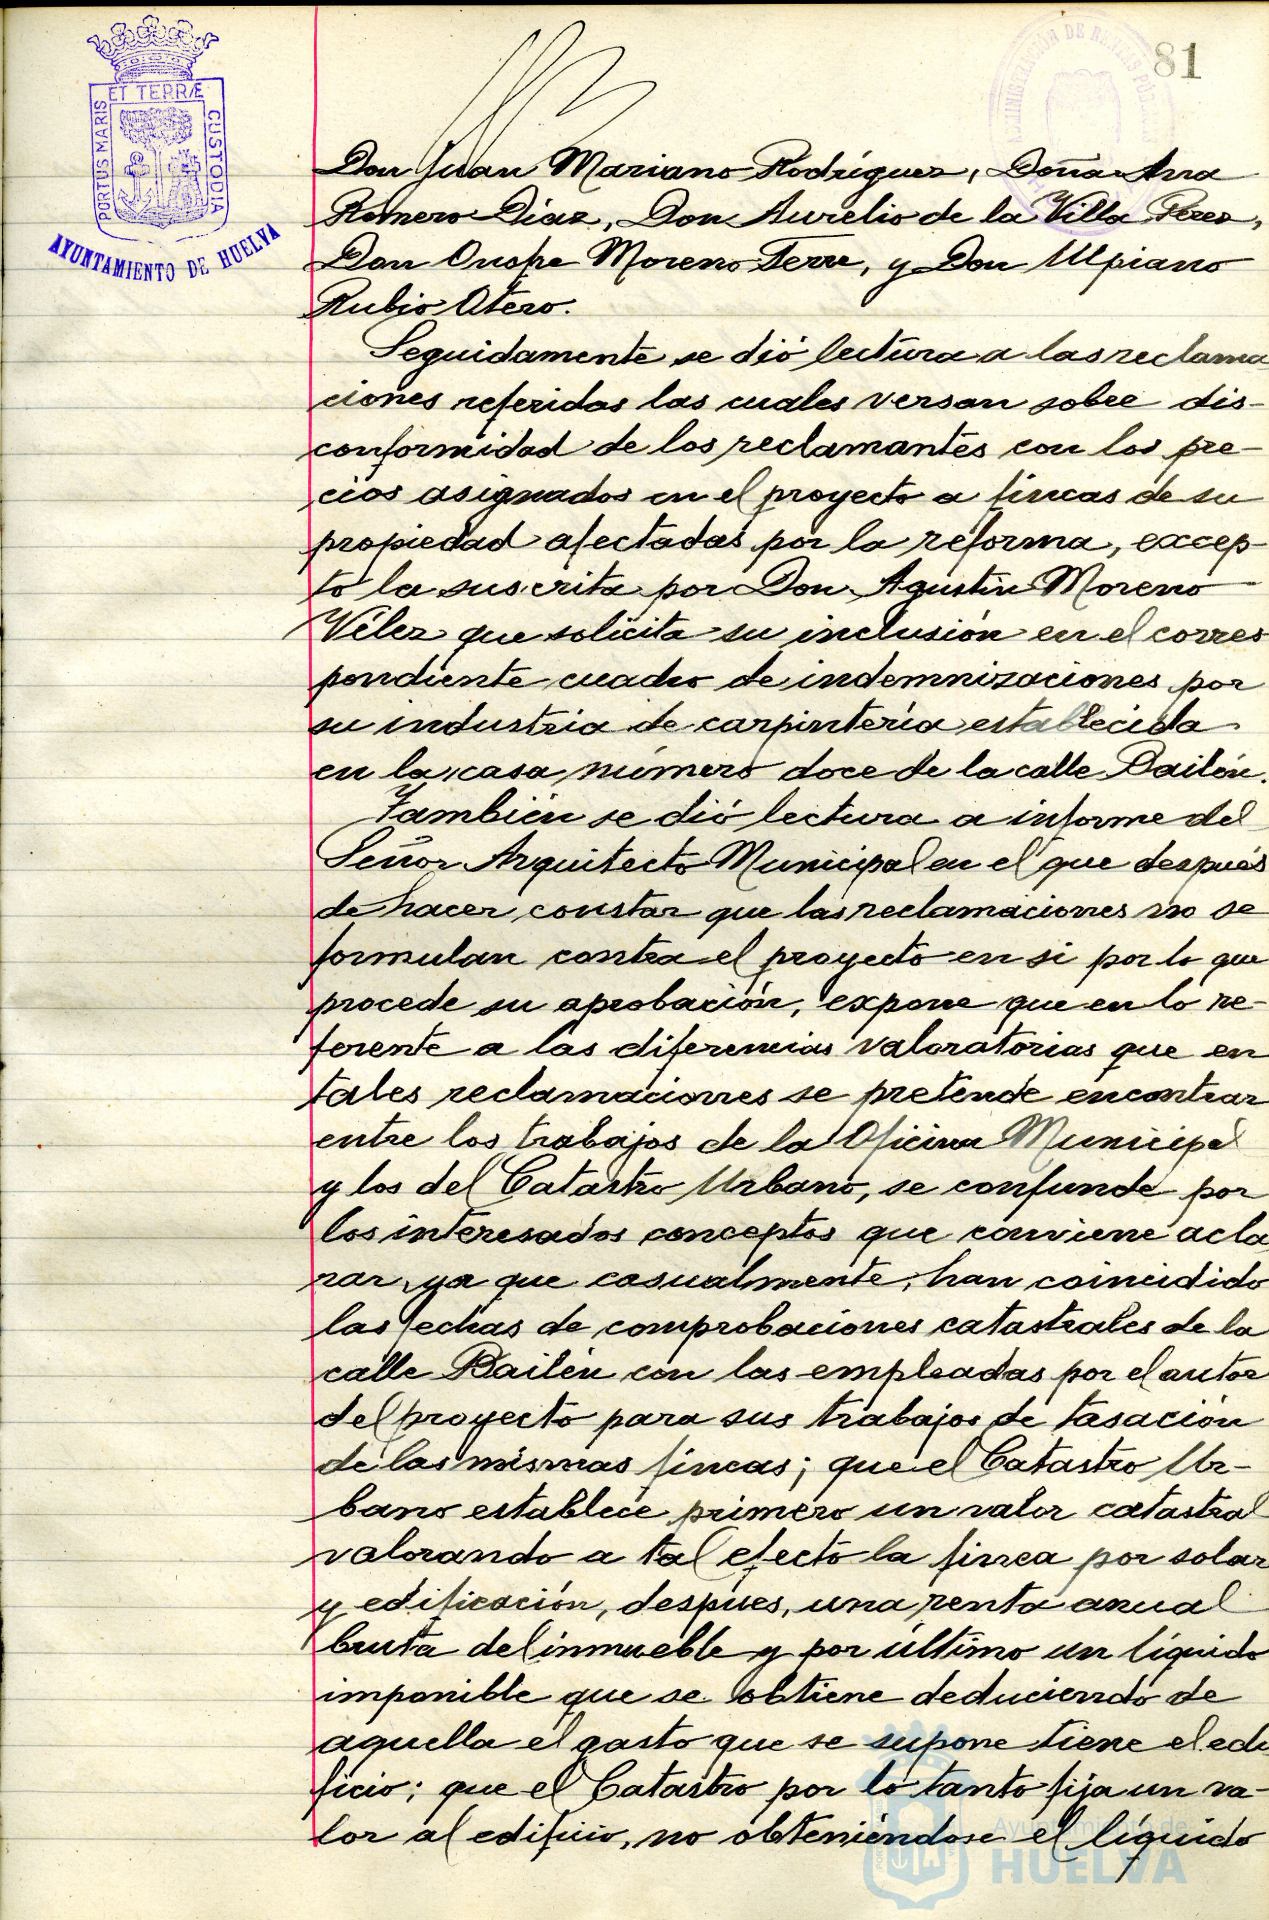 81
PORTUS MARIS ET TERRÆ CUSTODIA
AYUNTAMIENTO DE HUELVA
Don Juan Mariano Rodríguez, Doña Ana
Romero Díaz, Don Aurelio de la Villa Perez,
Don Onofre Moreno Terre, y Don Ulpiano
Rubio Otero.
Seguidamente se dió lectura a las reclama
ciones referidas las cuales versan sobre dis-
conformidad de los reclamantes con los pre-
cios asignados en el proyecto a fincas de su
propiedad afectadas por la reforma, excep-
to la suscrita por Don Agustín Moreno
Vélez que solicita su inclusión en el corres
pondiente cuadro de indemnizaciones por
su industria de carpintería establecida
en la casa número doce de la calle Bailén.
También se dió lectura a informe del
Señor Arquitecto Municipal en el que después
de hacer constar que las reclamaciones no se
formulan contra el proyecto en si por lo que
procede su aprobación, expone que en lo re-
ferente a las diferencias valoratorias que en
tales reclamaciones se pretende encontrar
entre los trabajos de la Oficina Municipal
y los del Catastro Urbano, se confunde por
los interesados conceptos que conviene acla
rar, ya que casualmente, han coincidido
las fechas de comprobaciones catastrales de la
calle Bailén con las empleadas por el autor
del proyecto para sus trabajos de tasación
de las mismas fincas; que el Catastro Ur-
bano establece primero un valor catastral
valorando a tal efecto la finca por solar
y edificación, despúes, una renta anual
bruta del inmueble y por último un líquido
imponible que se obtiene deduciendo de
aquella el gasto que se supone tiene el edi
ficio; que el Catastro por lo tanto fija un va-
lor al edificio, no obteniéndose el líquido
Ayuntamiento de
HUELVA